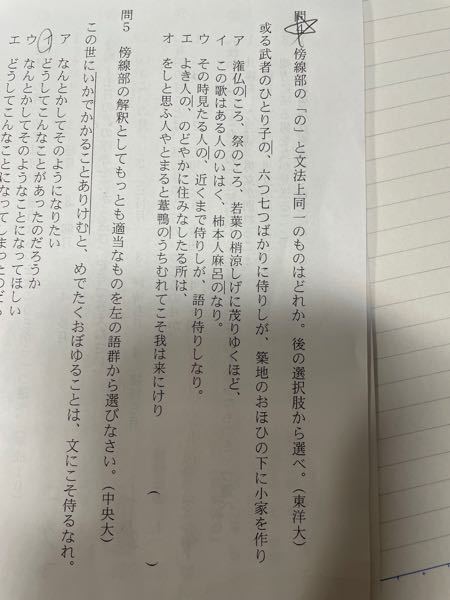 問4 傍線部の「の」と文法上同一のものはどれか。後の選択肢から選べ。(東洋大)
或る武者のひとり子の、六つ七つばかりに侍りしが、築地のおほひの下に小家を作り
ア 潅仏のころ、祭のころ、若葉の梢涼しげに茂りゆくほど、
イ この歌はある人のいはく、柿本人麻呂のなり。
ウ その時見たる人の、近くまで侍りしが、語り侍りしなり。
エ よき人の、のどやかに住みなしたる所は、
オ をしと思ふ人やとまると葦鴨のうちむれてこそ我は来にけり
( )
問5 傍線部の解釈としてもっとも適当なものを左の語群から選びなさい。(中央大)
この世にいかでかかることありけむと、めでたくおぼゆることは、文にこそ侍るなれ。
ア なんとかしてそのようになりたい
イ どうしてこんなことがあったのだろうか
ウ なんとかしてそのようなことになってほしい
エ どうしてこんなことになってしまったのだろ